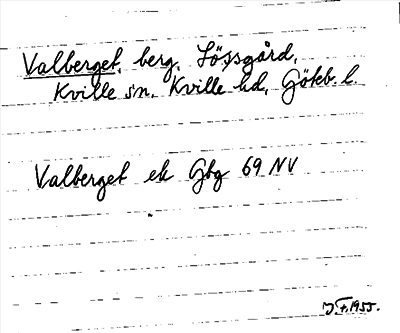 Valberget, berg, Lössgård,
Kville sn, Kville hd, Göteb. l.
Valberget ek Gbg 69 NV
J. F. 1955.